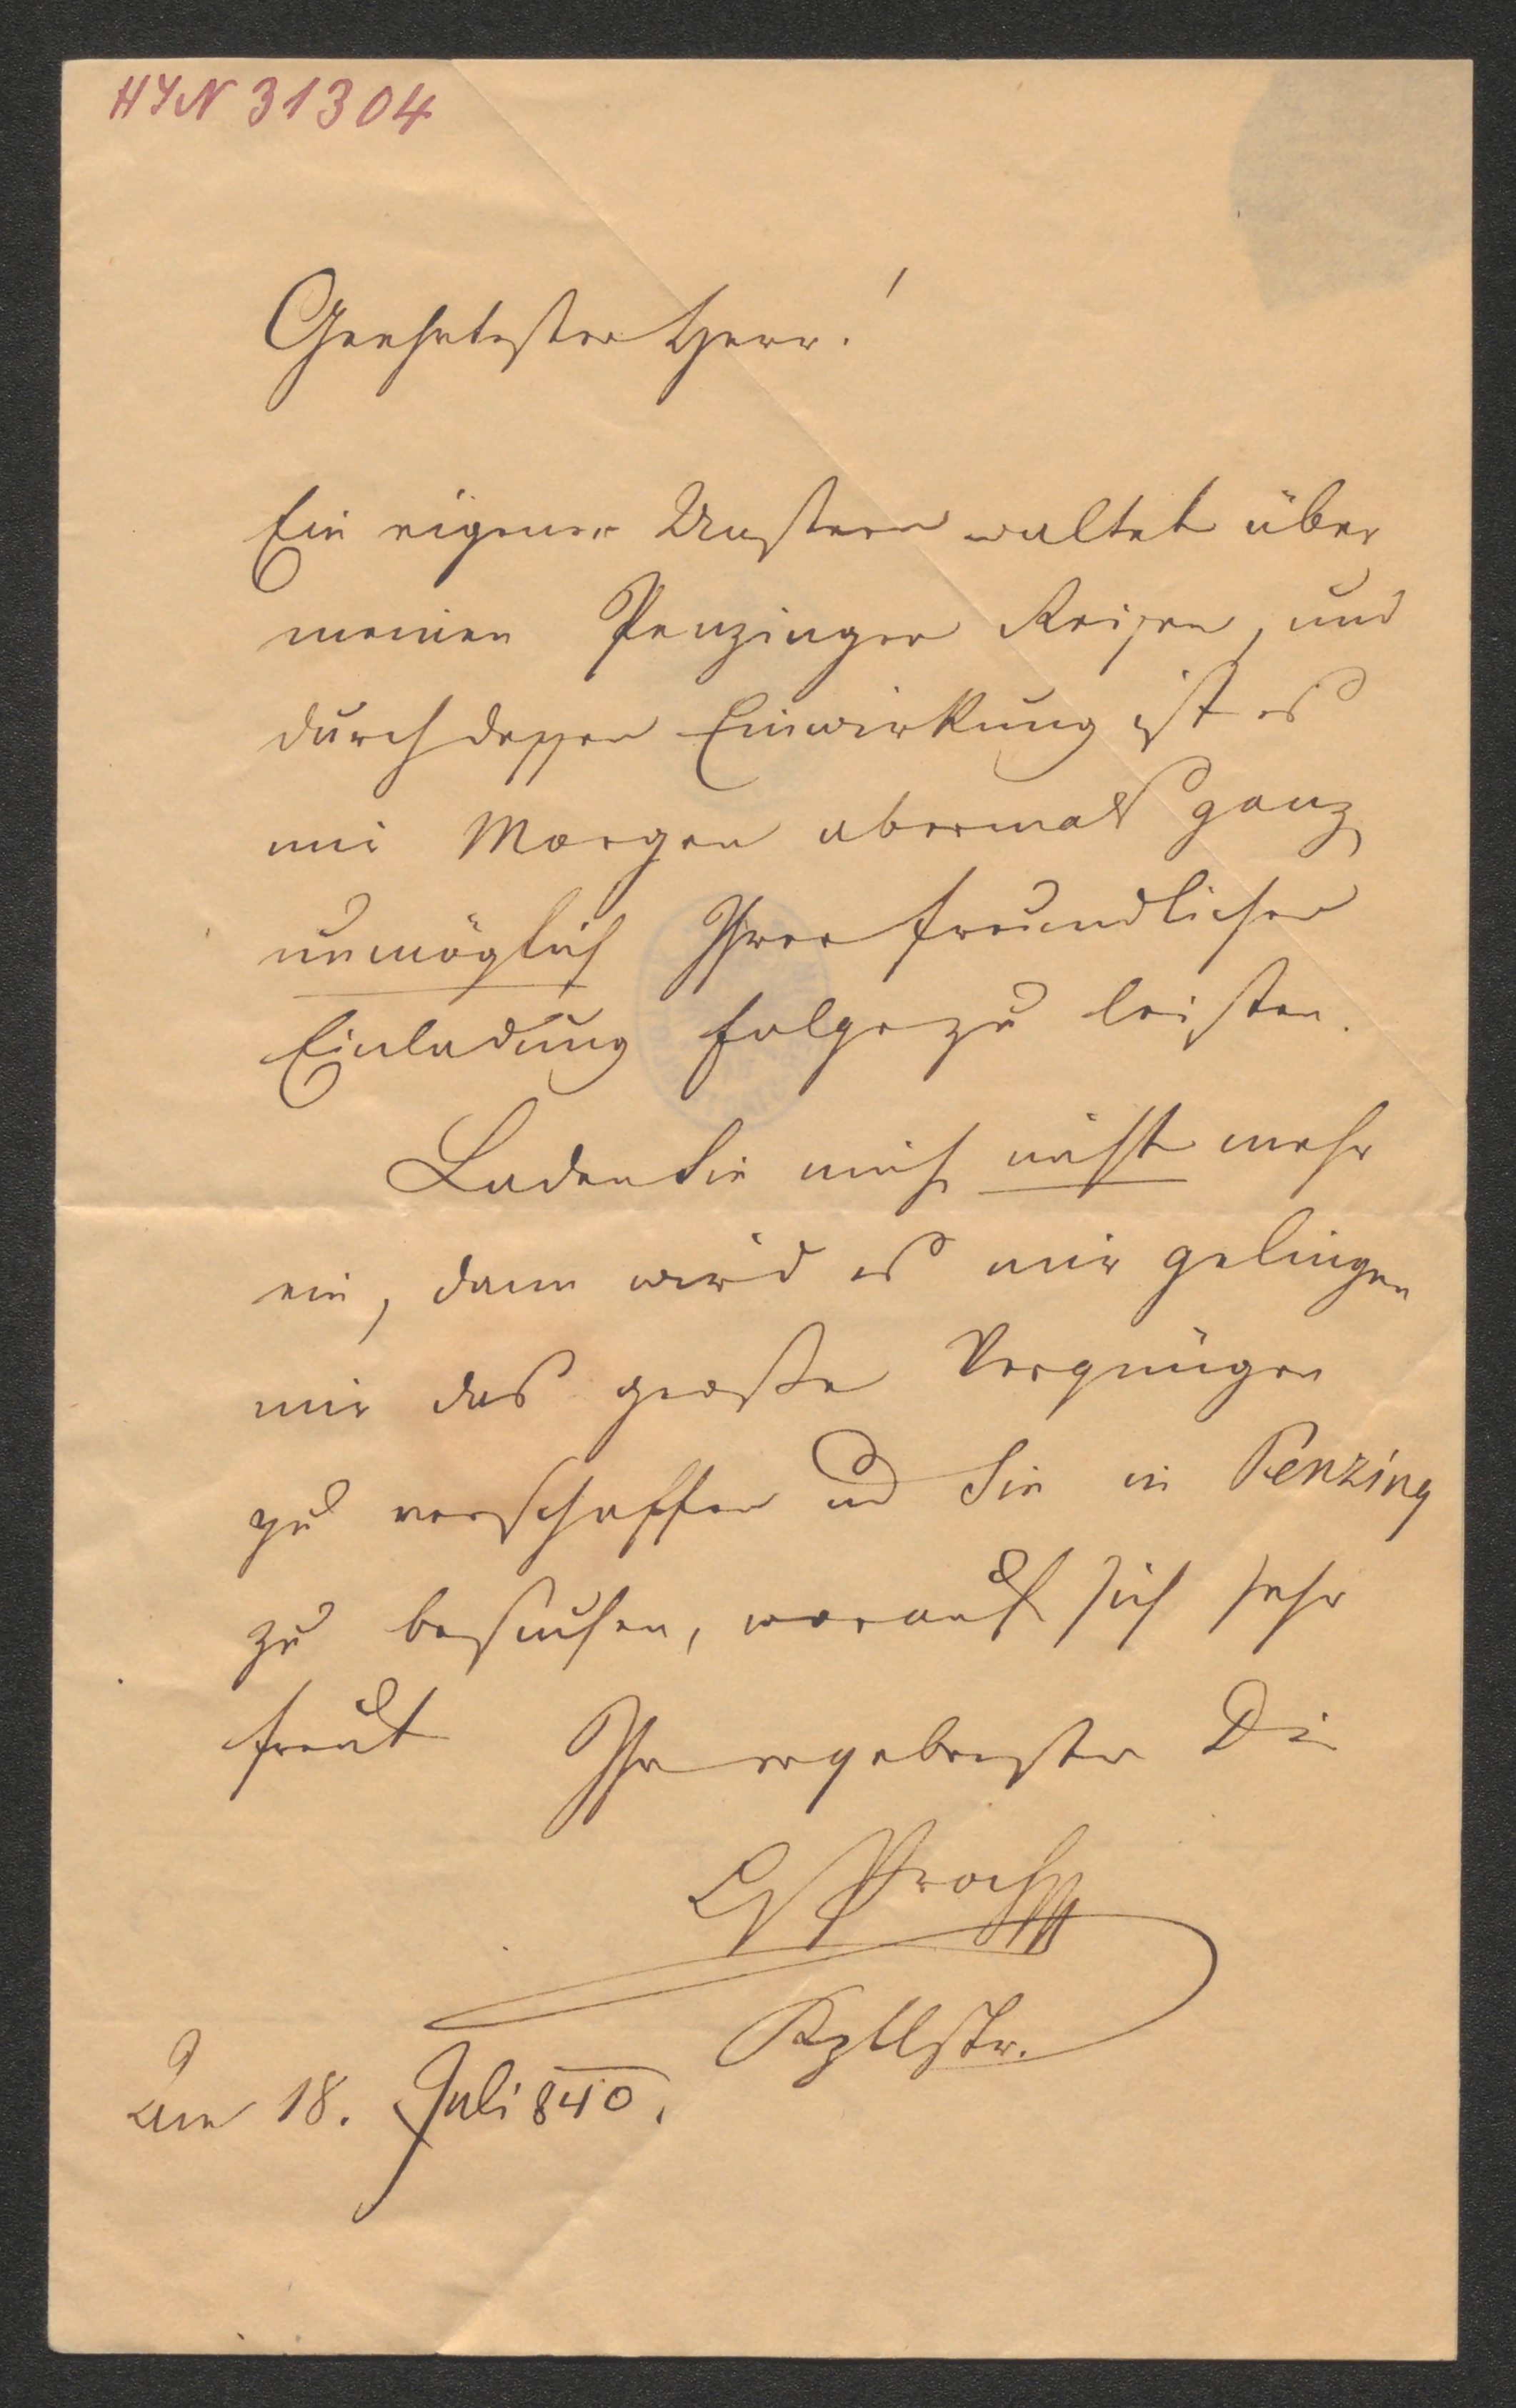 HIN 31304
Geehrtester Herr!
Ein eigener Unstern waltet über
meinen Penzinger Reisen, und
durch dessen Einwirkung ist es
mir Morgen abermals ganz
unmöglich Ihrer freundlichen
Einladung folge zu leisten.
Laden Sie mich nicht mehr
ein, dann wird es mir gelingen
mir das große Vergnügen
zu verschaffen und Sie in Penzing
zu besuchen, worauf sich sehr
freut Ihr ergebenster Di
Proch
Kpllstr.
Am 18. Juli 840.